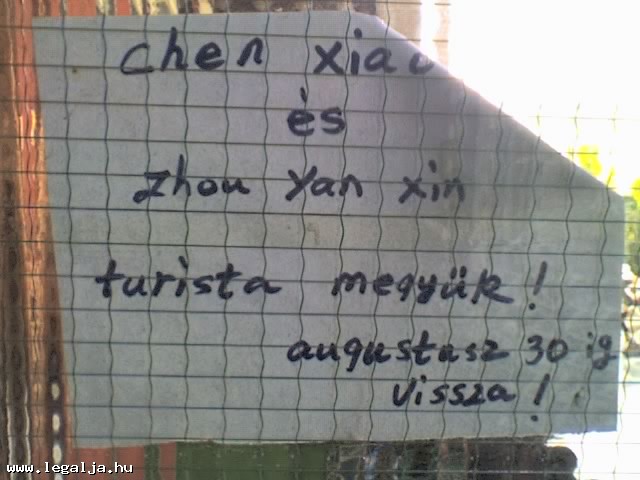 chen xiao
és
zhou yan xin
turista megyük!
augusztusz 30 ig
vissza!
www.legalja.hu